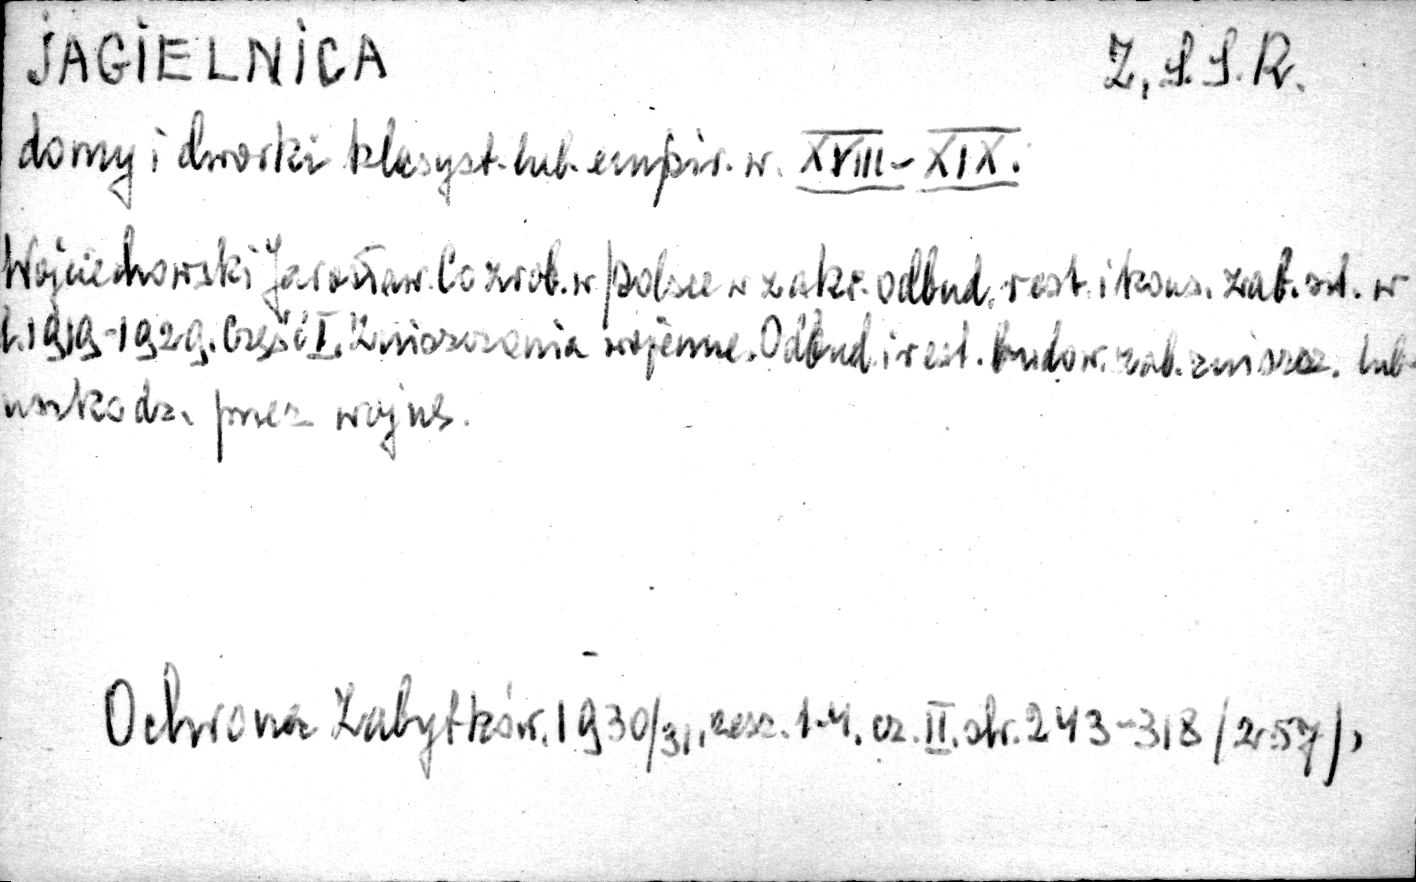 JAGIELNICA Z.S.S.R.
domy i dworki klasyst. lub. empir. w. XVIII - XIX.
Wojciechowski Jarosław. Co zrob. w Polsce w zakr. odbud, rest. i kons. zab. szt. w
l. 1919-1929. Część I. Zniszczenia wojenne. Odbud. i rest. budow. zab. zniszcz. lub
uszkodz. przez wojnę.
Ochrona Zabytków. 1930/31, zesz. 1-4. cz. II. str. 243-318 /257/,